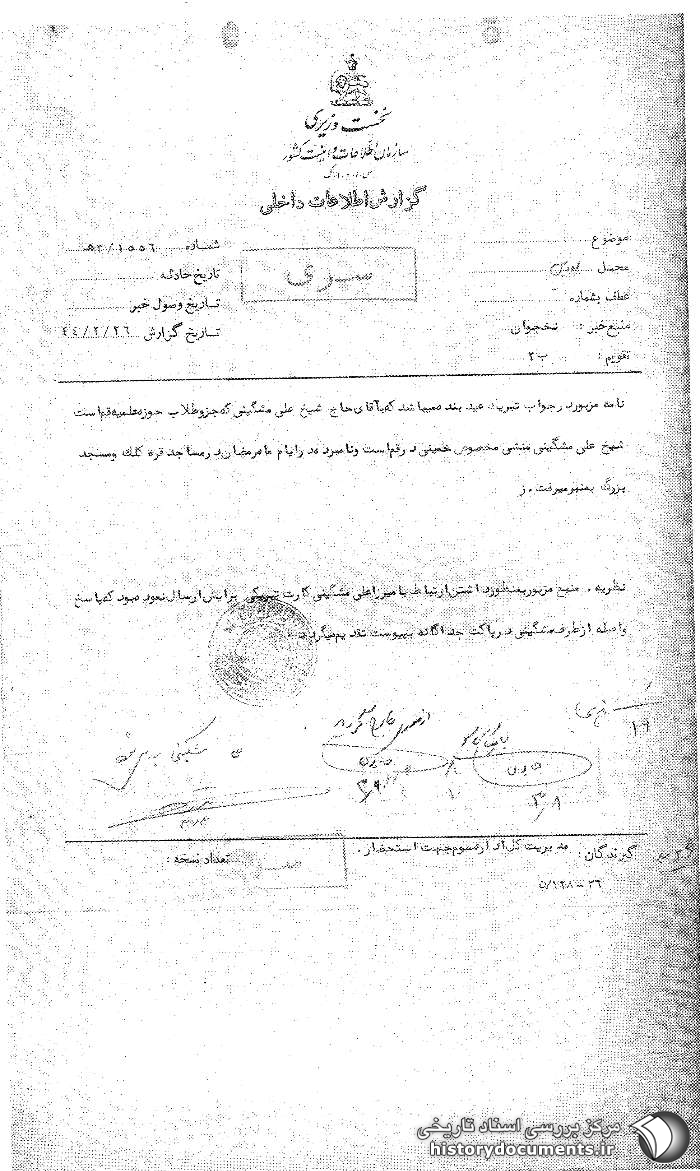 نخست وزیری
سازمان اطلاعات و امنیت کشور
گزارش اطلاعات داخلی
موضوع
شماره ۵۲/۱۵۵۶
سری
محل
تاریخ حادثه
عطف بشماره
تاریخ وصول خبر
منبع خبر : نخجوان
تاریخ گزارش ۴۴/۲/۲۶
تقویم : ب۲
نامه مزبور در جواب تبریک عید بنده میباشد که بآقای حاج شیخ علی مشگینی که جزو طلاب حوزه علمیه قم است
شیخ علی مشگینی منشی مخصوص خمینی در قم است و نامبرده در ایام ماه رمضان در مساجد قره کلک و مسجد
بزرگ بمنبر میرفت . ز
نظریه . منبع مزبور بمنظور داشتن ارتباط با میرزا علی مشگینی کارت تبریکی برایش ارسال نموده بود که پاسخ
واصله از طرف مشگینی در پاکت جداگانه به پیوست تقدیم میگردد .
گیرندگان : مدیریت کل اداره سوم جهت استحضار .
تعداد نسخه :
۵/۱۲۸ - ۲۶
مرکز بررسی اسناد تاریخی
historydocuments.ir